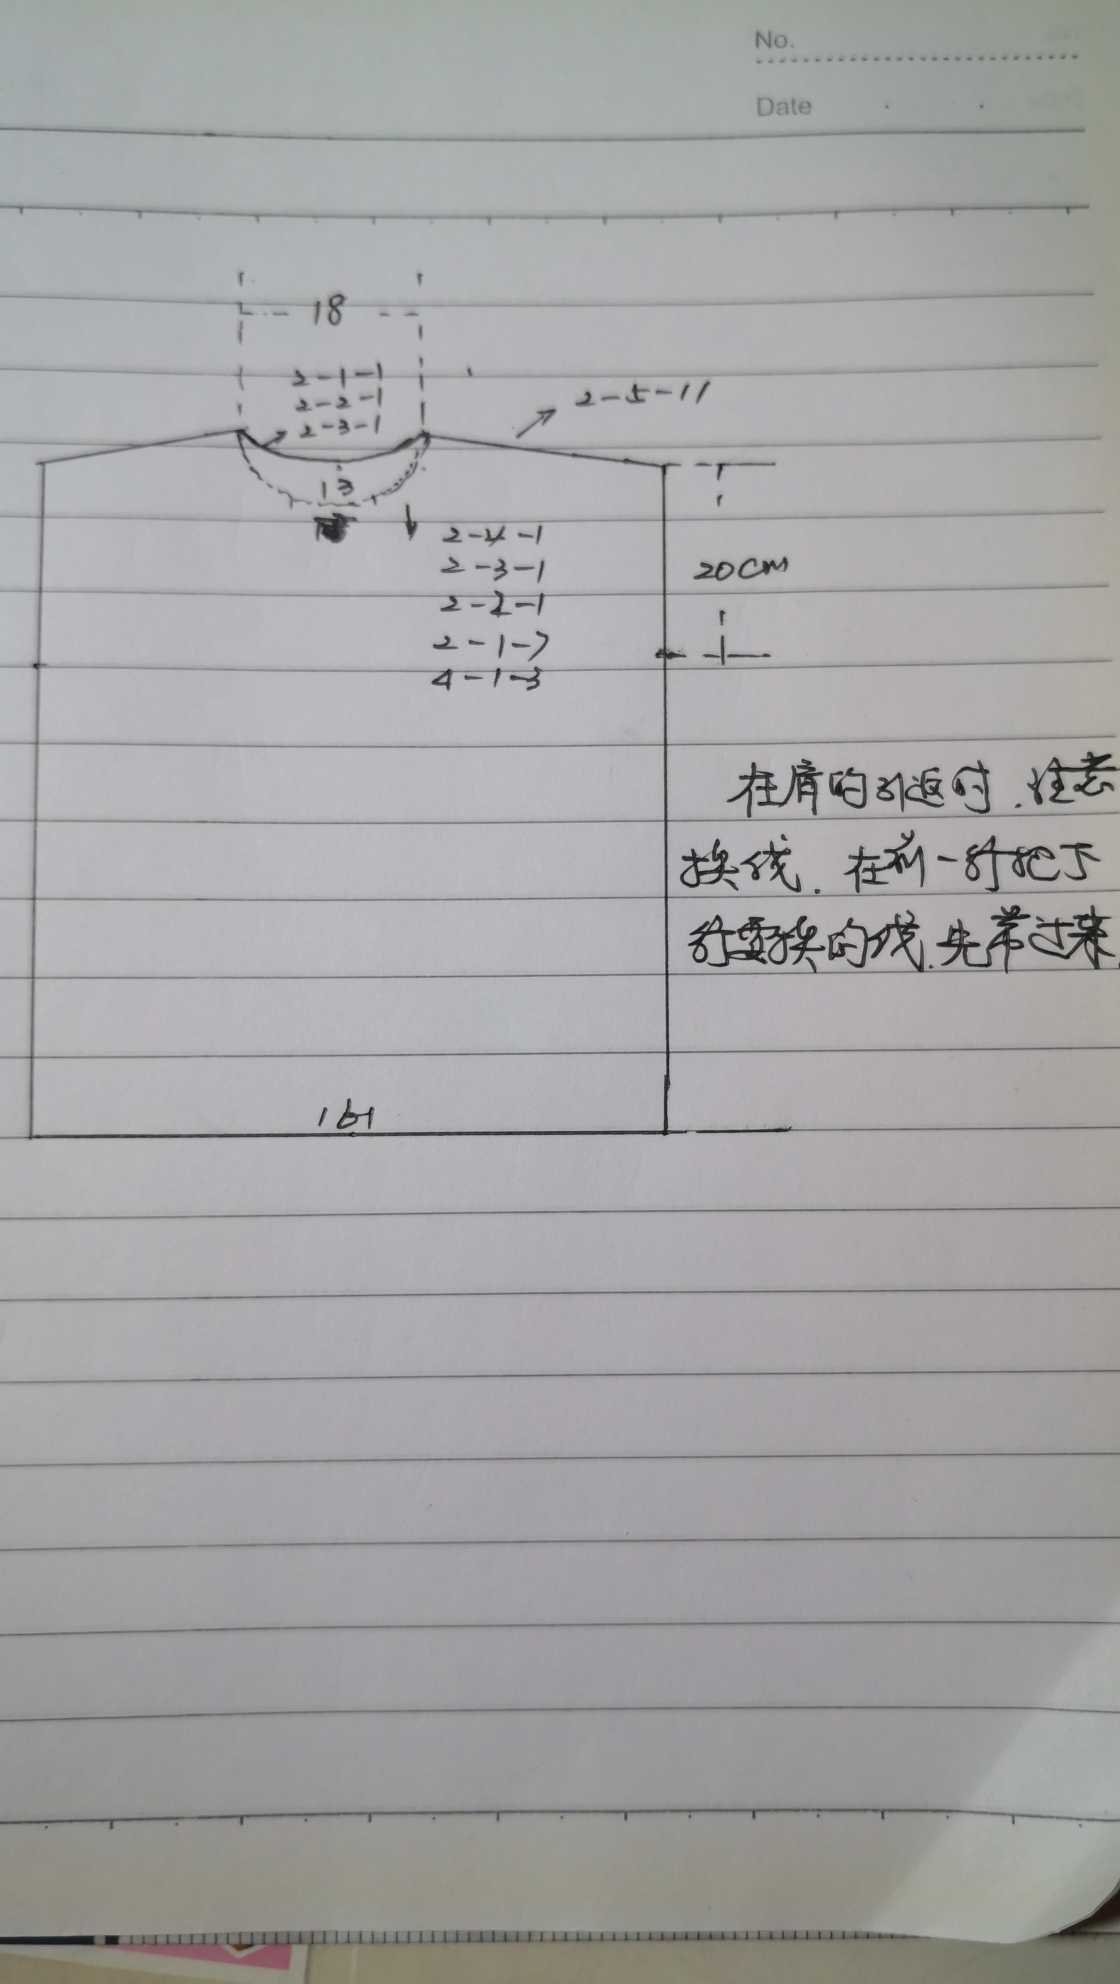 No.
Date
18
2-1-1
2-2-1
2-3-1
2-5-11
13
2-4-1
2-3-1
2-2-1
2-1-7
4-1-3
20cm
在肩的引返时.注意
换线.在前一行把下
行要换的线.先带过来
161